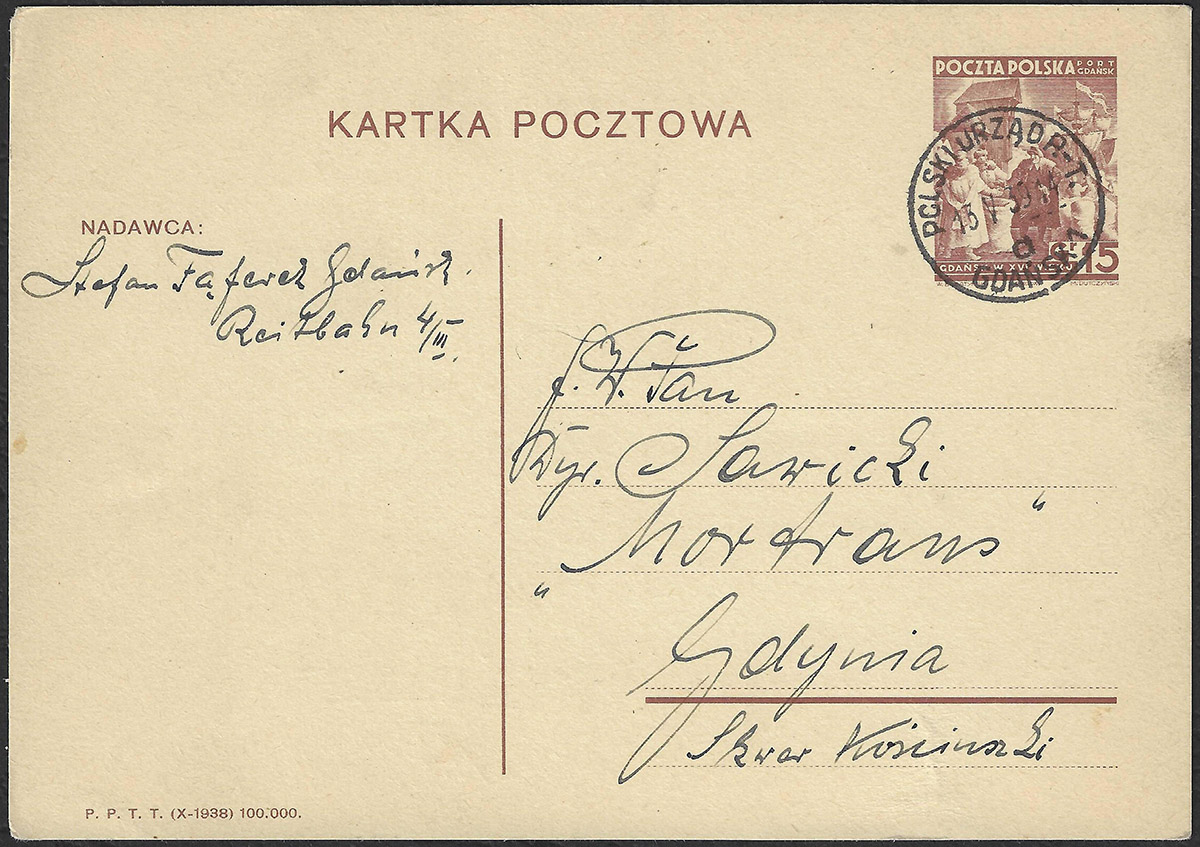 POCZTA POLSKA PORT GDAŃSK
KARTKA POCZTOWA
POLSKI URZĄD P.-T.
13 V 39 14
a
GDAŃSK 1
GDAŃSK W XVI WIEKU
Gr 15
NADAWCA:
Stefan Gdańsk
Reitbahn 4/III.
J. W. Pan
Dyr. Sawicki
"Mortrans"
Gdynia
Skwer Kościuszki
P. P. T. T. (X-1938) 100.000.